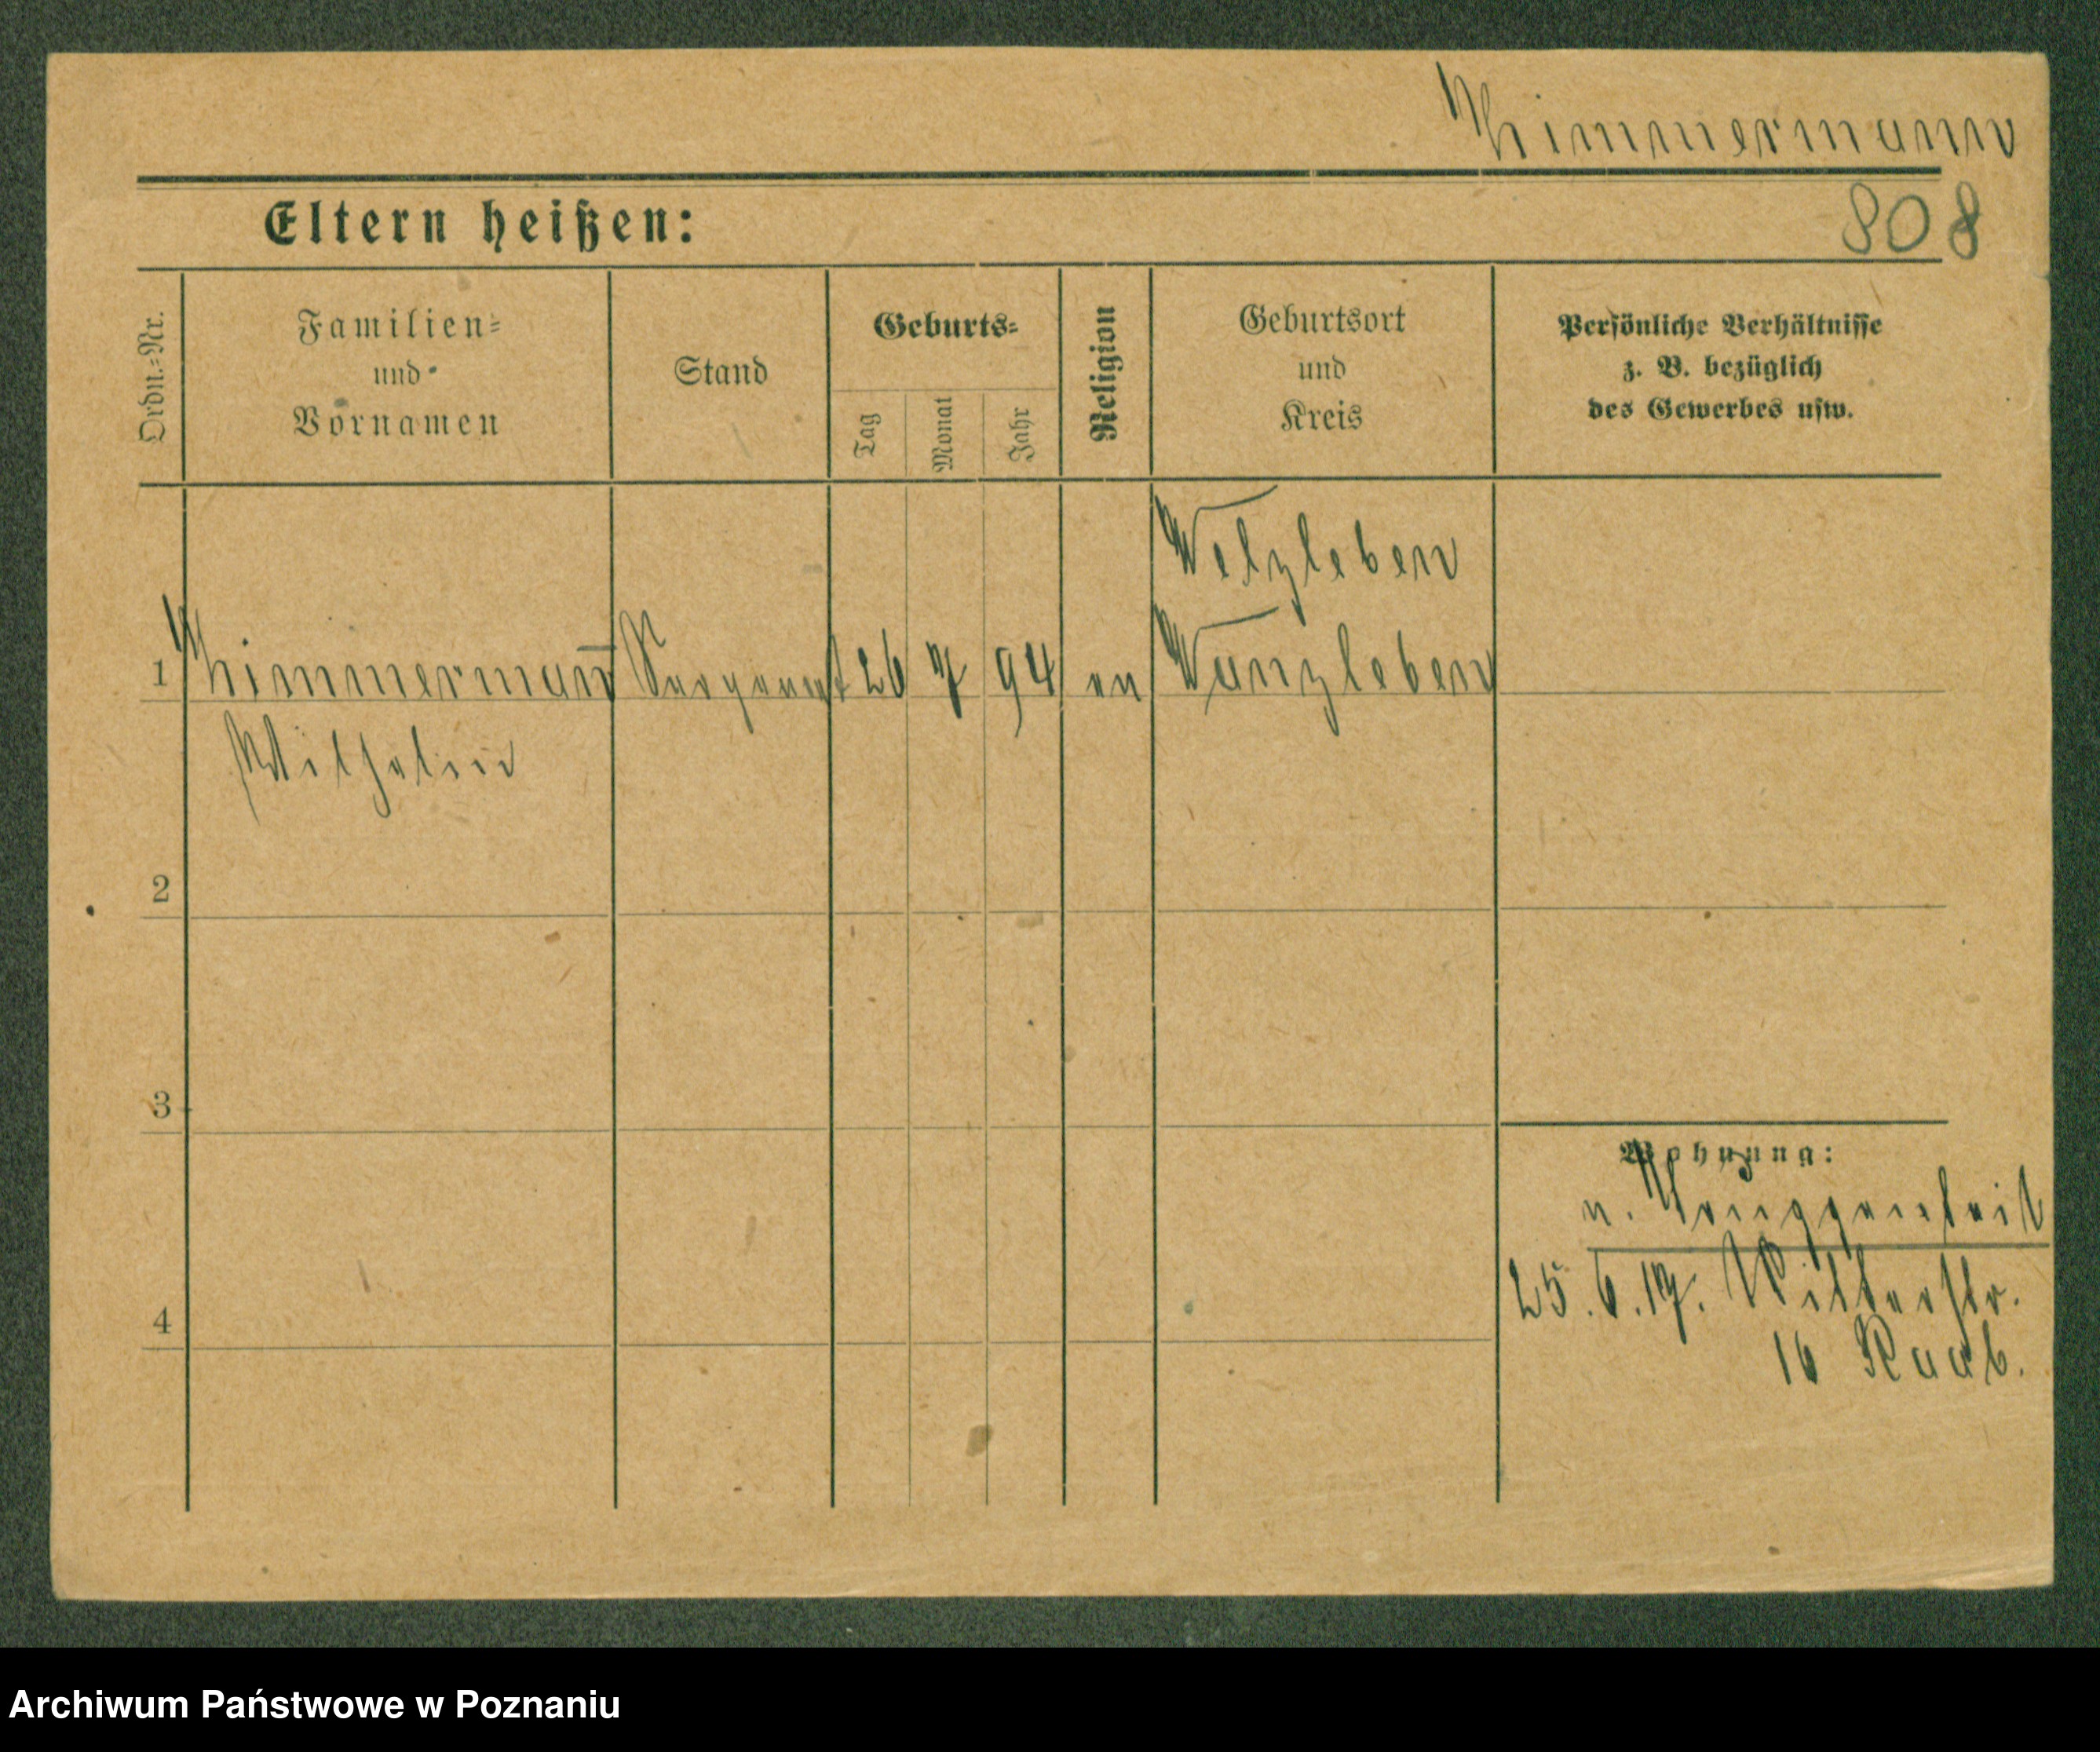 Zimmermann
Eltern heißen:
808
Ordn.=Nr.
Familien=
und
Vornamen
Stand
Geburts=
Tag
Monat
Jahr
Religion
Geburtsort
und
Kreis
Persönliche Verhältnisse
z. B. bezüglich
des Gewerbes usw.
Welzleben
1 Zimmermann Sergeant 26 7 94 ev Wanzleben
Wilhelm
2
3
Wohnung:
4
25.6.17. Ritterstr.
16 Raab.
Archiwum Państwowe w Poznaniu